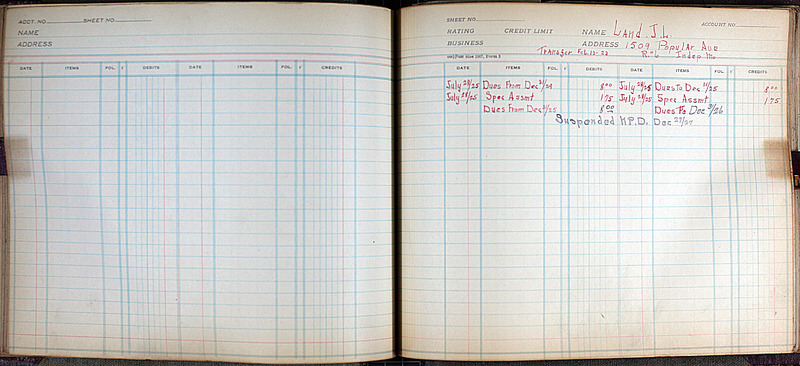 ACCT. NO. SHEET NO.
NAME
ADDRESS
DATE ITEMS FOL. √ DEBITS DATE ITEMS FOL. √ CREDITS
SHEET NO. ACCOUNT NO.
RATING CREDIT LIMIT NAME Land J.L.
BUSINESS ADDRESS 1509 Popular Ave
Transfer Feb. 12-23 R-6 Indep. Mo
DATE ITEMS FOL. √ DEBITS DATE ITEMS FOL. √ CREDITS
July 28/25 Dues From Dec 31/24 8 00 July 28/25 Dues To Dec 31/25 8 00
July 28/25 Spec Assmt 1 75 July 28/25 Spec. Assmt 1 75
Dues From Dec 31/25 8 00 Dues To Dec 31/26
Suspended N.P.D. Dec 27/27